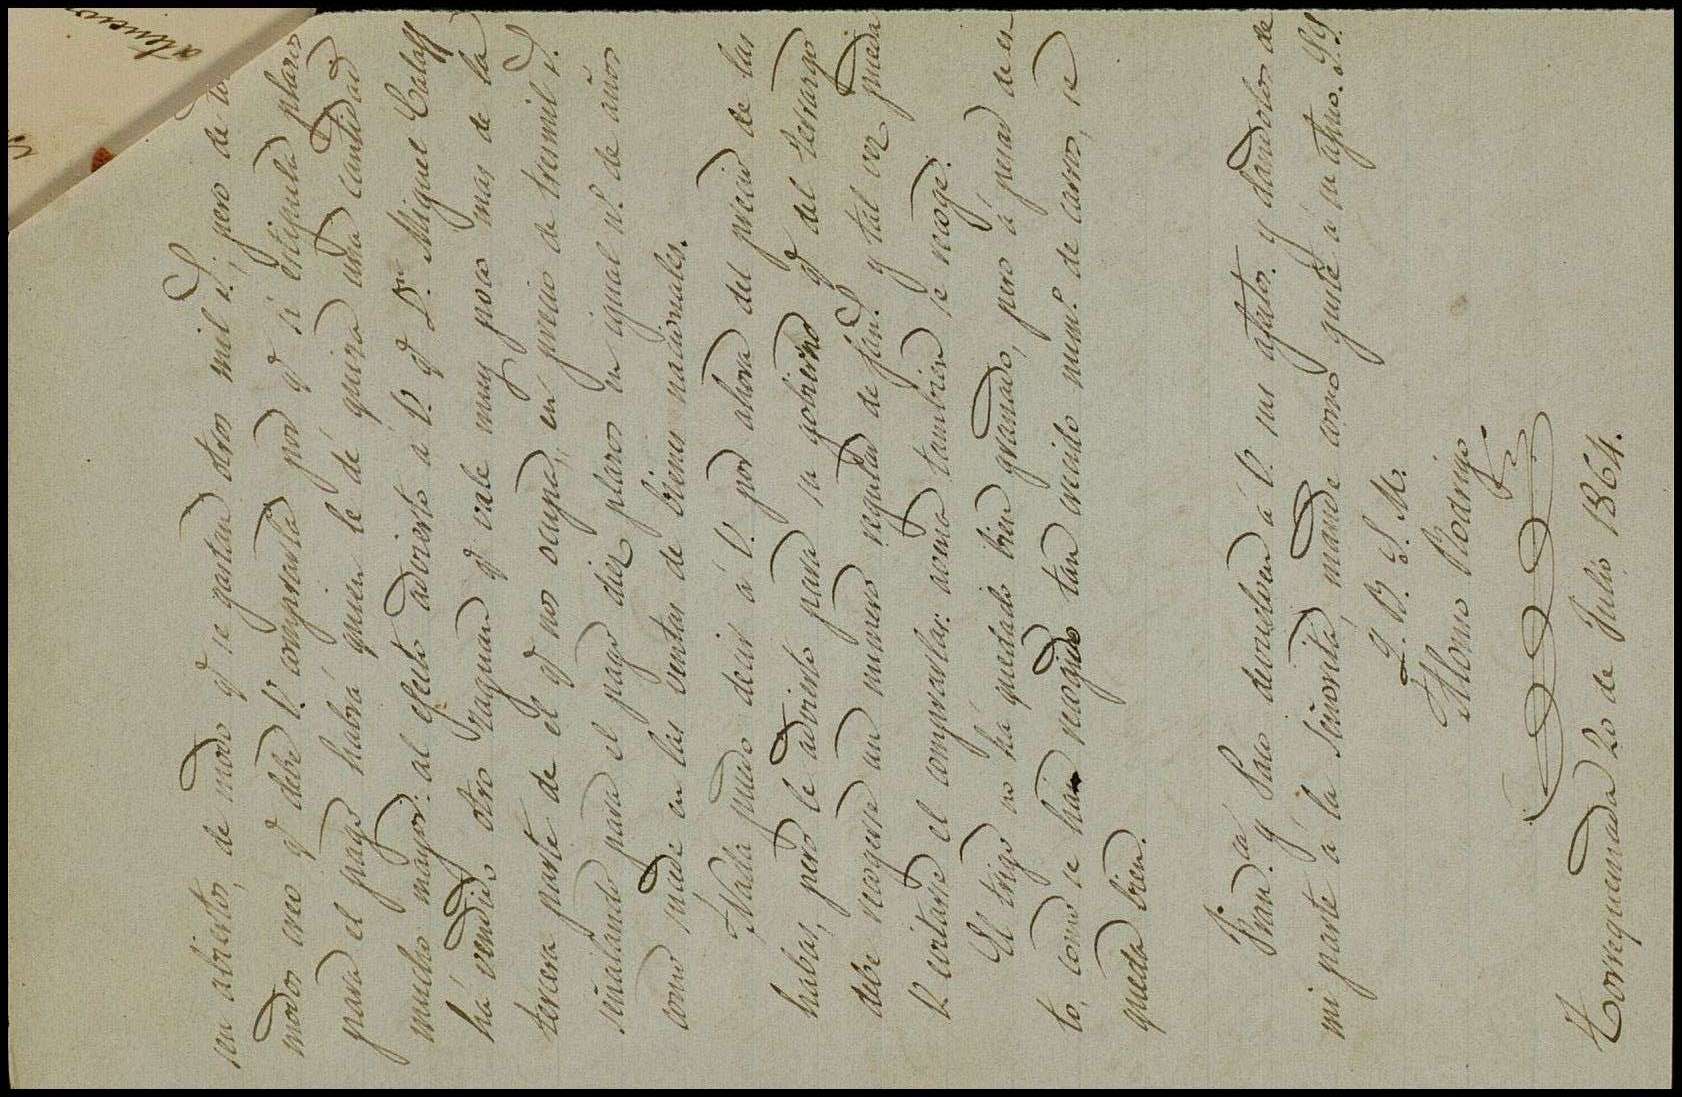 su abiertos, de modo qe se gastan otros mil r.; pero de to
modos creo qe debe V. comprarla por qe si estipula plazos
para el pago habrá quien le dé quiza una cantidad
mucho mayor: al efecto advierto á V. qe Dn. Miguel Calaff
há vendido otro zaguan qe vale muy poco mas de la
tercera parte de el qe nos ocupa, en precio de tresmil r.
señalando para el pago diez plazos en igual nº. de años
como sucede en las ventas de bienes nacionales.
Nada puedo decir á V. por ahora del precio de las
habas, pero le advierto para su gobierno qe del terrazgo
debe recogerse un numero regular de fans. y tal vez pueda
V. evitarse el comprarlas: avena tambien se recoge.
El trigo no há quedado bien granado, pero á pesar de es
to, como se han recogido tan crecido numº. de carros, se
queda bien.
Fran.ca y Paco devuelven á V. sus afectos. y dandolos de
mi parte á la Señorita, mande como guste á su afmo. S.S.
Q. B. S. M.
Alonso Rodrigo
Torrequemada 20 de Julio 1864.
atencion